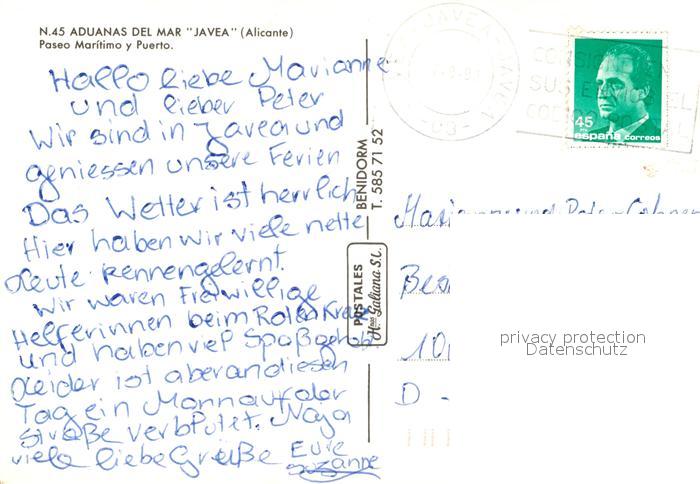 N.45 ADUANAS DEL MAR "JAVEA" (Alicante)
Paseo Marítimo y Puerto.
Hallo liebe Marianne
und lieber Peter
Wir sind in Javea und
geniessen unsere Ferien
Das Wetter ist herrlich
Hier haben wir viele nette
Leute kennengelernt.
Wir waren Freiwillige
Helferinnen beim Roten Kreuz
und haben viel Spaß gehabt
Leider ist aber an diesen
Tag ein Mann auf der
Straße verblutet. Naja
viele liebe Grüße Eure
Suzanne
POSTALES
Hnos Galiana S.L.
BENIDORM
T. 585 71 52
JAVEA
45
PTS
españa correos
Marianne und Peter
10
D -
privacy protection
Datenschutz